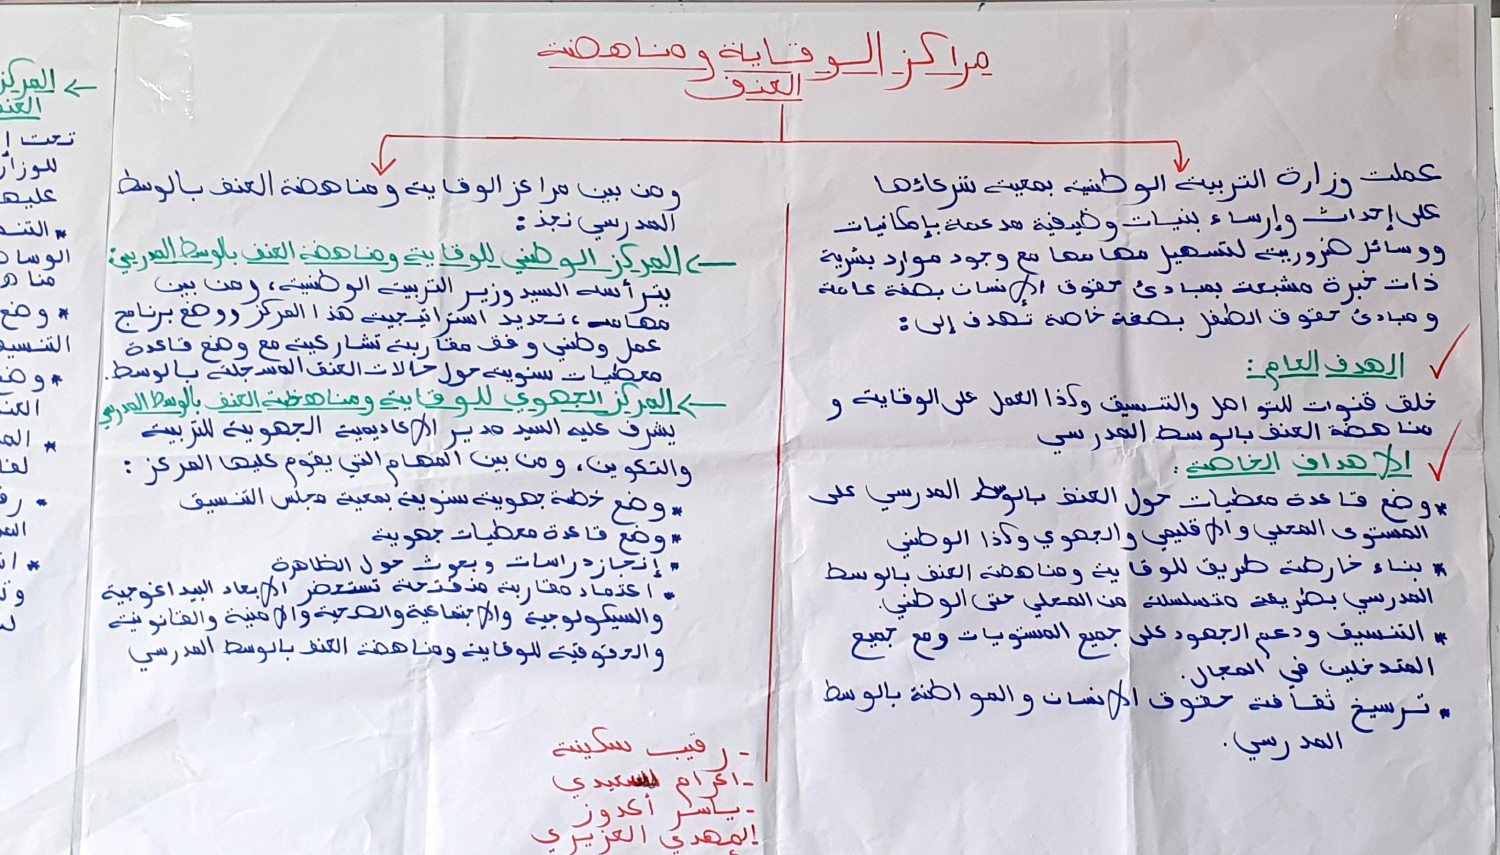 مراكز الوقاية ومناهضة
العنف
عملت وزارة التربية الوطنية بمعية شركاؤها
على إحداث وإرساء بنيات وظيفية مدعمة بإمكانيات
ووسائل ضرورية لتسهيل مهامها مع وجود موارد بشرية
ذات خبرة مشبعة بمبادئ حقوق الإنسان بصفة عامة
ومبادئ حقوق الطفل بصفة خاصة تهدف إلى :
الهدف العام :
خلق قنوات للتواصل والتنسيق وكذا العمل على الوقاية و
مناهضة العنف بالوسط المدرسي
الاهداف الخاصة :
* وضع قاعدة معطيات حول العنف بالوسط المدرسي على
المستوى المحلي والإقليمي والجهوي وكذا الوطني
* بناء خارطة طريق للوقاية ومناهضة العنف بالوسط
المدرسي بطريقة متسلسلة من المحلي حتى الوطني.
* التنسيق ودعم الجهود على جميع المستويات ومع جميع
المتدخلين في المجال.
* ترسيخ ثقافة حقوق الإنسان والمواطنة بالوسط
المدرسي.
ومن بين مراكز الوقاية ومناهضة العنف بالوسط
المدرسي نجد :
← المركز الوطني للوقاية ومناهضة العنف بالوسط المدرسي:
يترأسه السيد وزير التربية الوطنية، ومن بين
مهامه، تحديد استراتيجية هذا المركز ووضع برنامج
عمل وطني وفق مقاربة تشاركية مع وضع قاعدة
معطيات سنوية حول حالات العنف المسجلة بالوسط.
← المركز الجهوي للوقاية ومناهضة العنف بالوسط المدرسي
يشرف عليه السيد مدير الاكاديمية الجهوية للتربية
والتكوين، ومن بين المهام التي يقوم عليها المركز :
* وضع خطة جهوية سنوية بمعية مجلس التنسيق
* وضع قاعدة معطيات جهوية
* إنجاز دراسات وبحوث حول الظاهرة
* اعتماد مقاربة مندمجة تستحضر الأبعاد البيداغوجية
والسيكولوجية والاجتماعية والصحية والأمنية والقانونية
والحقوقية للوقاية ومناهضة العنف بالوسط المدرسي
- رقيب سكينة
- اكرام السعيدي
- ياسر أكدوز
المهدي العزيزي
← المركز
تحت
للوزار
عليها
* التنس
الوسا
* وضع
التنسيق
* وضع